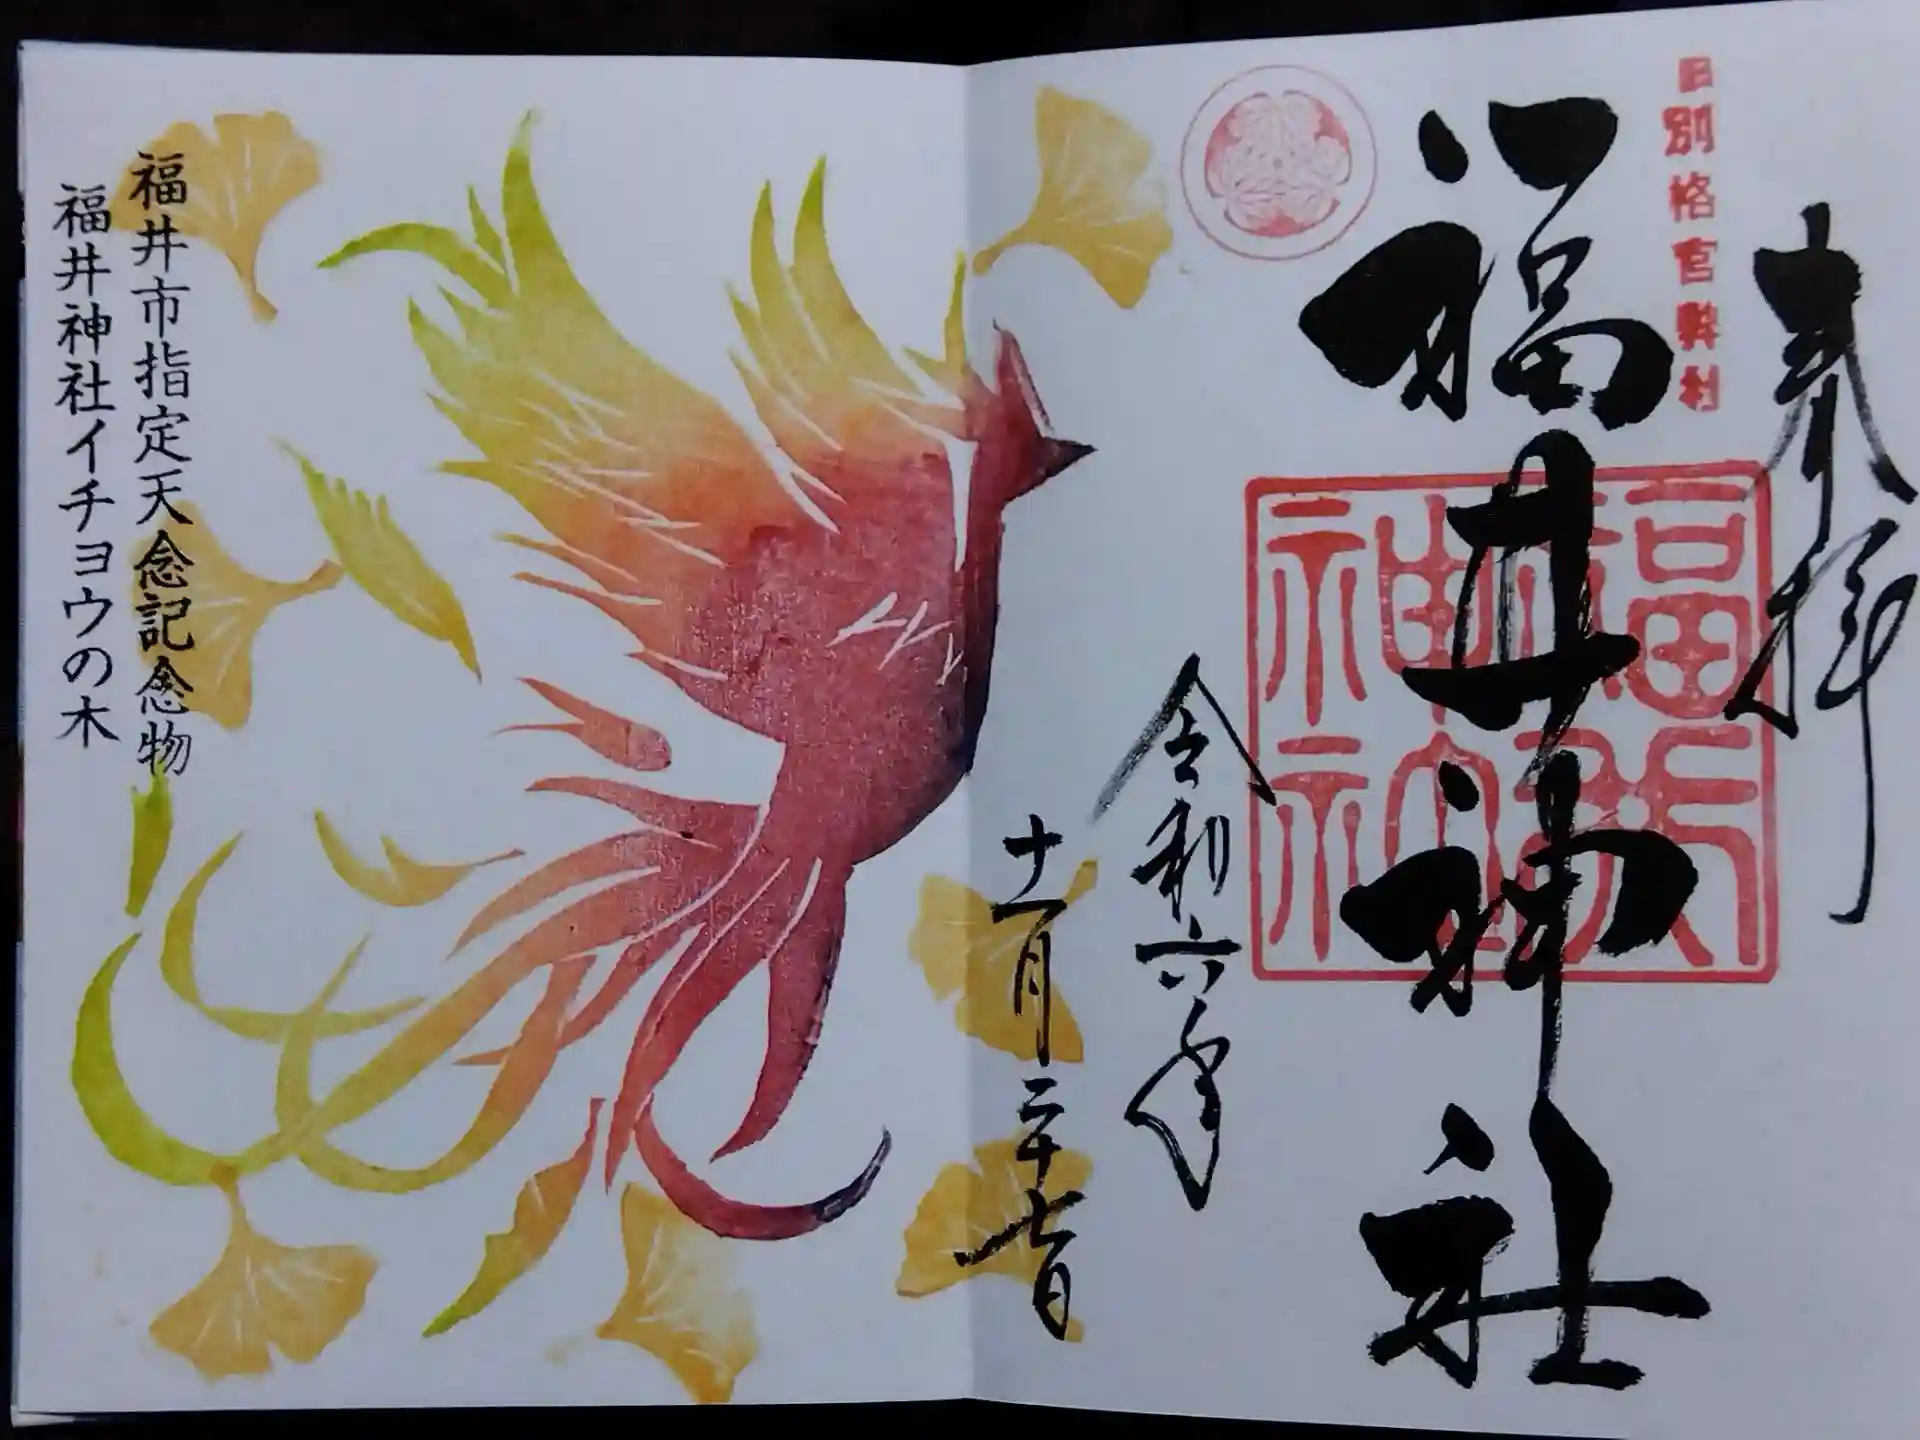 奉拝
旧別格官幣社
福井神社
福井神社
令和六年
十一月二十七日
福井市指定天念記念物
福井神社イチョウの木